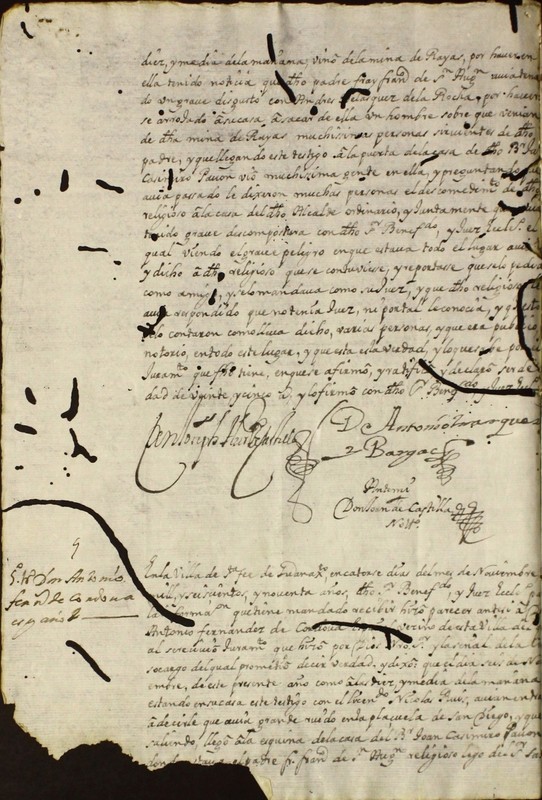 diez, y media de la mañana, vino de la mina de Rayas, por haver en
ella tenido noticia que dho padre fray fran.co de S.n Mig.l avia teni
do un grave disgusto con Andres Velasquez de la Rocha, por haver
se arrojado à su casa, à sacar de ella un hombre sobre que venian
de dha mina de Rayas muchisimas personas sirvientes de dho
padre, y que llegando este testigo à la puerta de la casa de dho B.r Ju
Casimiro Pavon vio muchisima gente en ella, y preguntando que
avia passado le dixeron muchas personas el descomedim.to de dho
religioso à la casa del dho Alcalde ordinario, y juntamente que
tenido grave descompostura con dho S.r Benef.do y Juez Eccl.co
qual viendo el grave peligro en que estava todo el lugar avia
y dicho à dho religioso que se contuviese, y reportase que se lo pedia
como amigo, y se lo mandava como su Juez, y que dho religioso
avia respondido que no tenia Juez, ni por tal le conocia, y que esto
se lo contaron como lleva dicho, varias personas, y que era publico
notorio, en todo este lugar, y que esta es la verdad, y lo que sabe
Juram.to que fho tiene, en que se afirmó, y ratificó, y declaró ser de
dad de veinte y cinco a.s y lo firmó con dho S.r Benef.do y Juez
D Antonio
Bargas
Ante mi
Don Joan de Castilla
Not.o
5
t.o Don Antonio
fern.z de Cordova
En la Villa de S.ta fee de Guanax.to en catorse dias del mes de Noviembre
mill, y seiscientos, y noventa años, dho S.r Benef.do y Juez Eccl.co
la informa.on que tiene mandado recibir hizo parecer ante si
Antonio fernandez de Cordova vecino de esta Villa del
al sere Juram.to que hizo por Dios Nro S.r y la señal de la
so cargo del qual prometió decir verdad, y dixo que el dia seis de No
embre, de este presente año como à las diez, y media de la mañana
estando en su casa este testigo con el Licen.do Nicolas Ruis,
à decirle que avia grande ruido en la plasuela de san Diego, y que
saliendo, llegó à la esquina de la casa del B.r Joan Casimiro Pavon
donde estava el padre fr. fran.co de S.n Mig.l religioso lego del S.r San